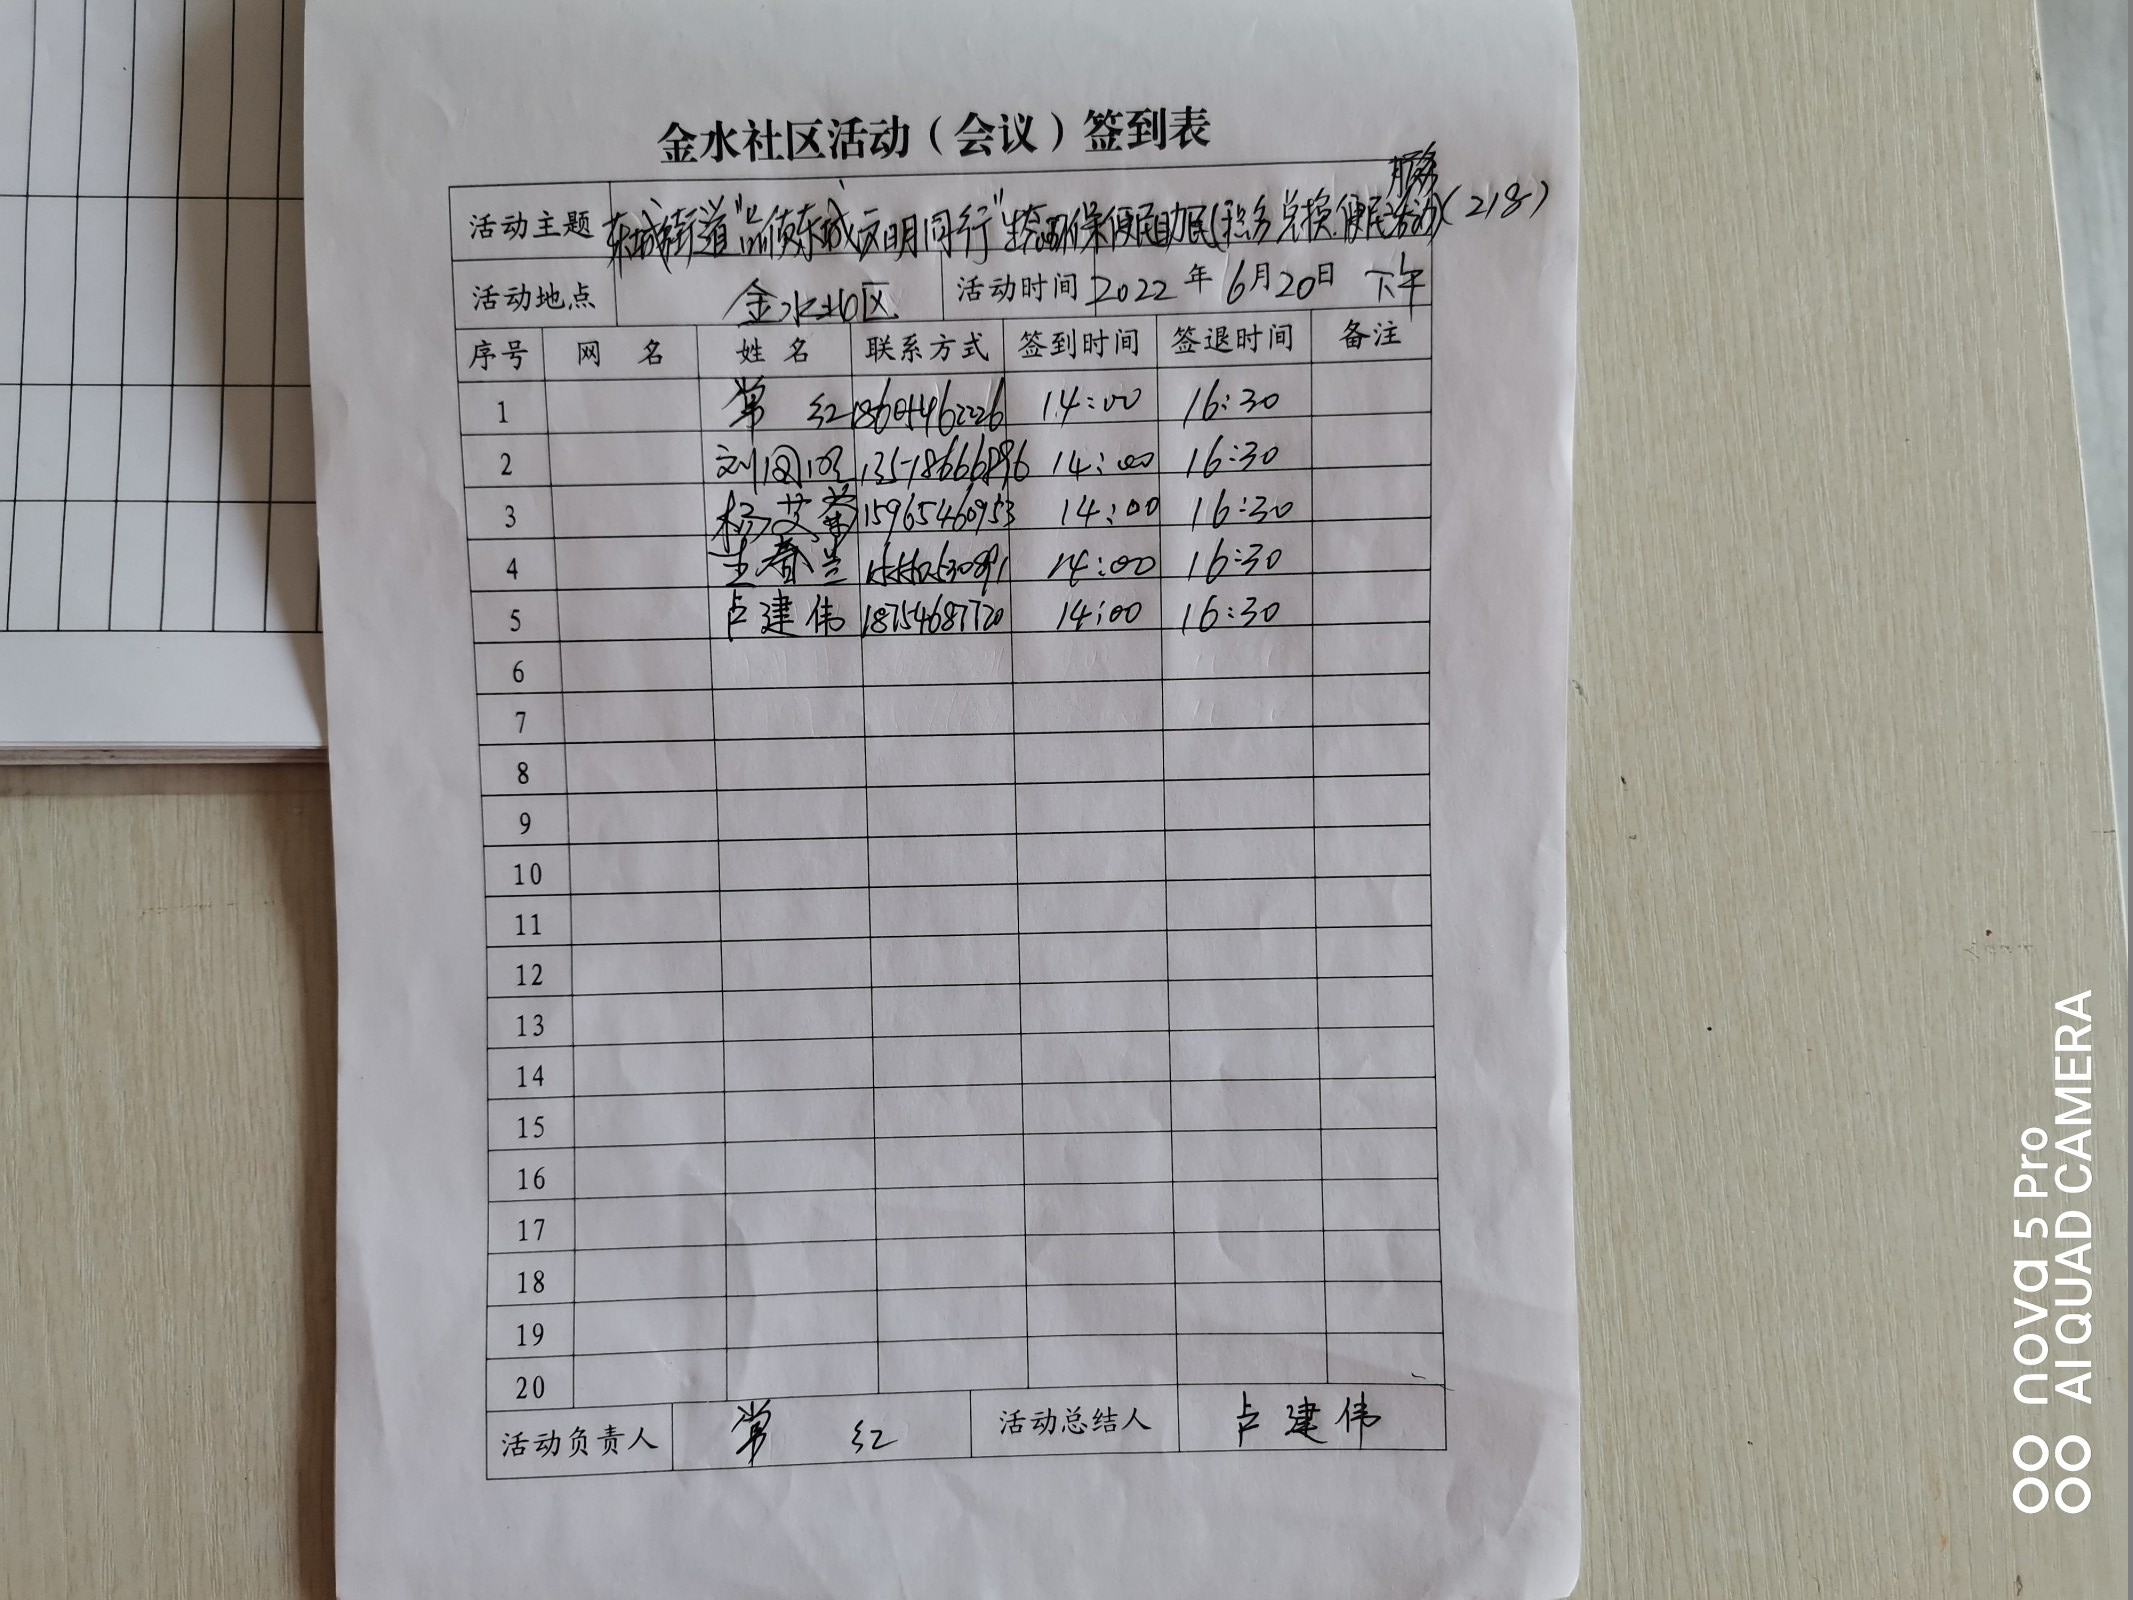 金水社区活动（会议）签到表
服务
活动主题 东城街道“品质东城 文明同行”生态环保便民助民(积分兑换.便民活动)(218)
活动地点 金水社区 活动时间 2022年6月20日 下午
序号 网 名 姓 名 联系方式 签到时间 签退时间 备注
1 常 红 14:00 16:30
2 13518666896 14:00 16:30
3 杨艾荣 15965460953 14:00 16:30
4 王春兰 14:00 16:30
5 卢建伟 18754687720 14:00 16:30
6
7
8
9
10
11
12
13
14
15
16
17
18
19
20
活动负责人 常 红 活动总结人 卢建伟
nova 5 Pro
AI QUAD CAMERA